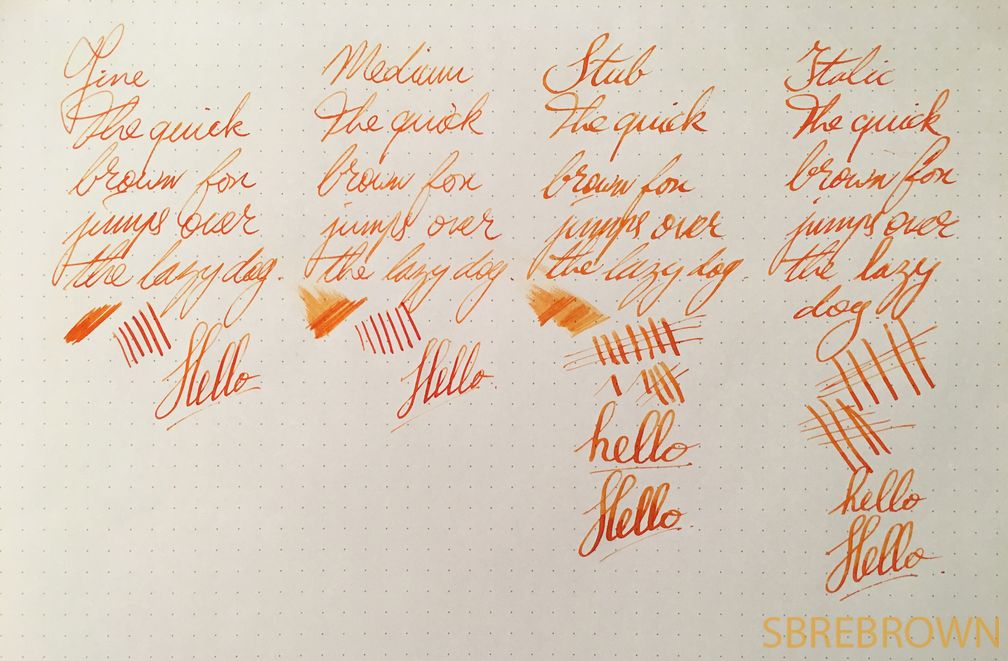 Fine
The quick
brown fox
jumps over
the lazy dog.
Hello
Medium
The quick
brown fox
jumps over
the lazy dog.
Hello
Stub
The quick
brown fox
jumps over
the lazy dog.
hello
Hello
Italic
The quick
brown fox
jumps over
the lazy
dog
hello
Hello
SBREBROWN